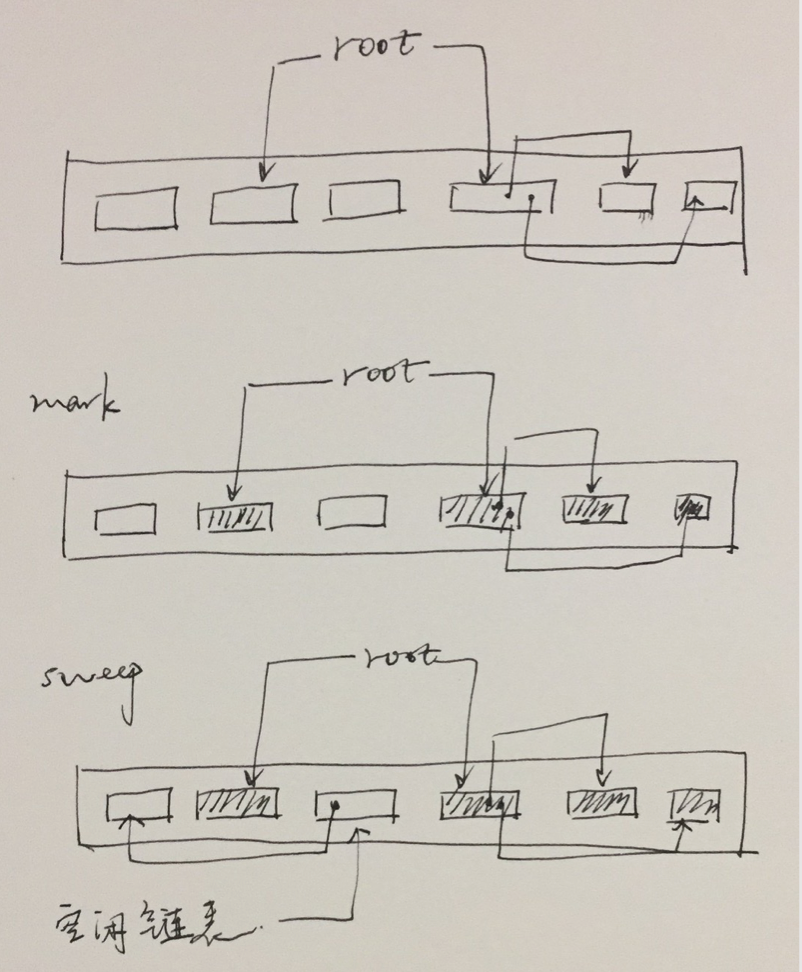 root
mark
root
sweep
root
空闲链表